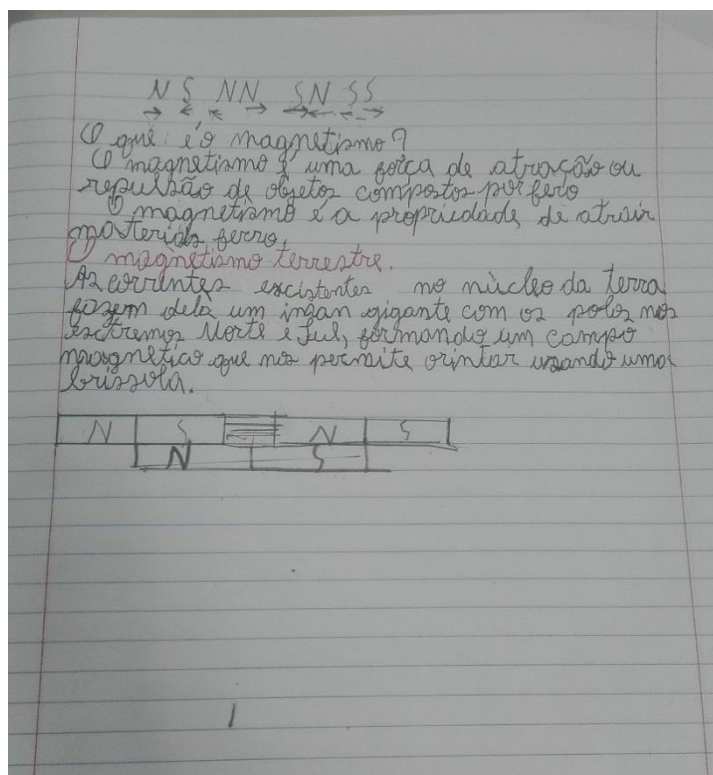 N S NN SN SS
O que é o magnetismo?
O magnetismo é uma força de atração ou
repulsão de objetos compostos por fero
O magnetismo é a propriedade de atrair
materias ferro.
O magnetismo terrestre.
As correntes excistentes no núcleo da terra
fazem dela um iman gigante com os polos nos
exctremos Norte e Sul, formando um campo
magnético que nos permite orintar usando uma
brissola.
N S N S
N S